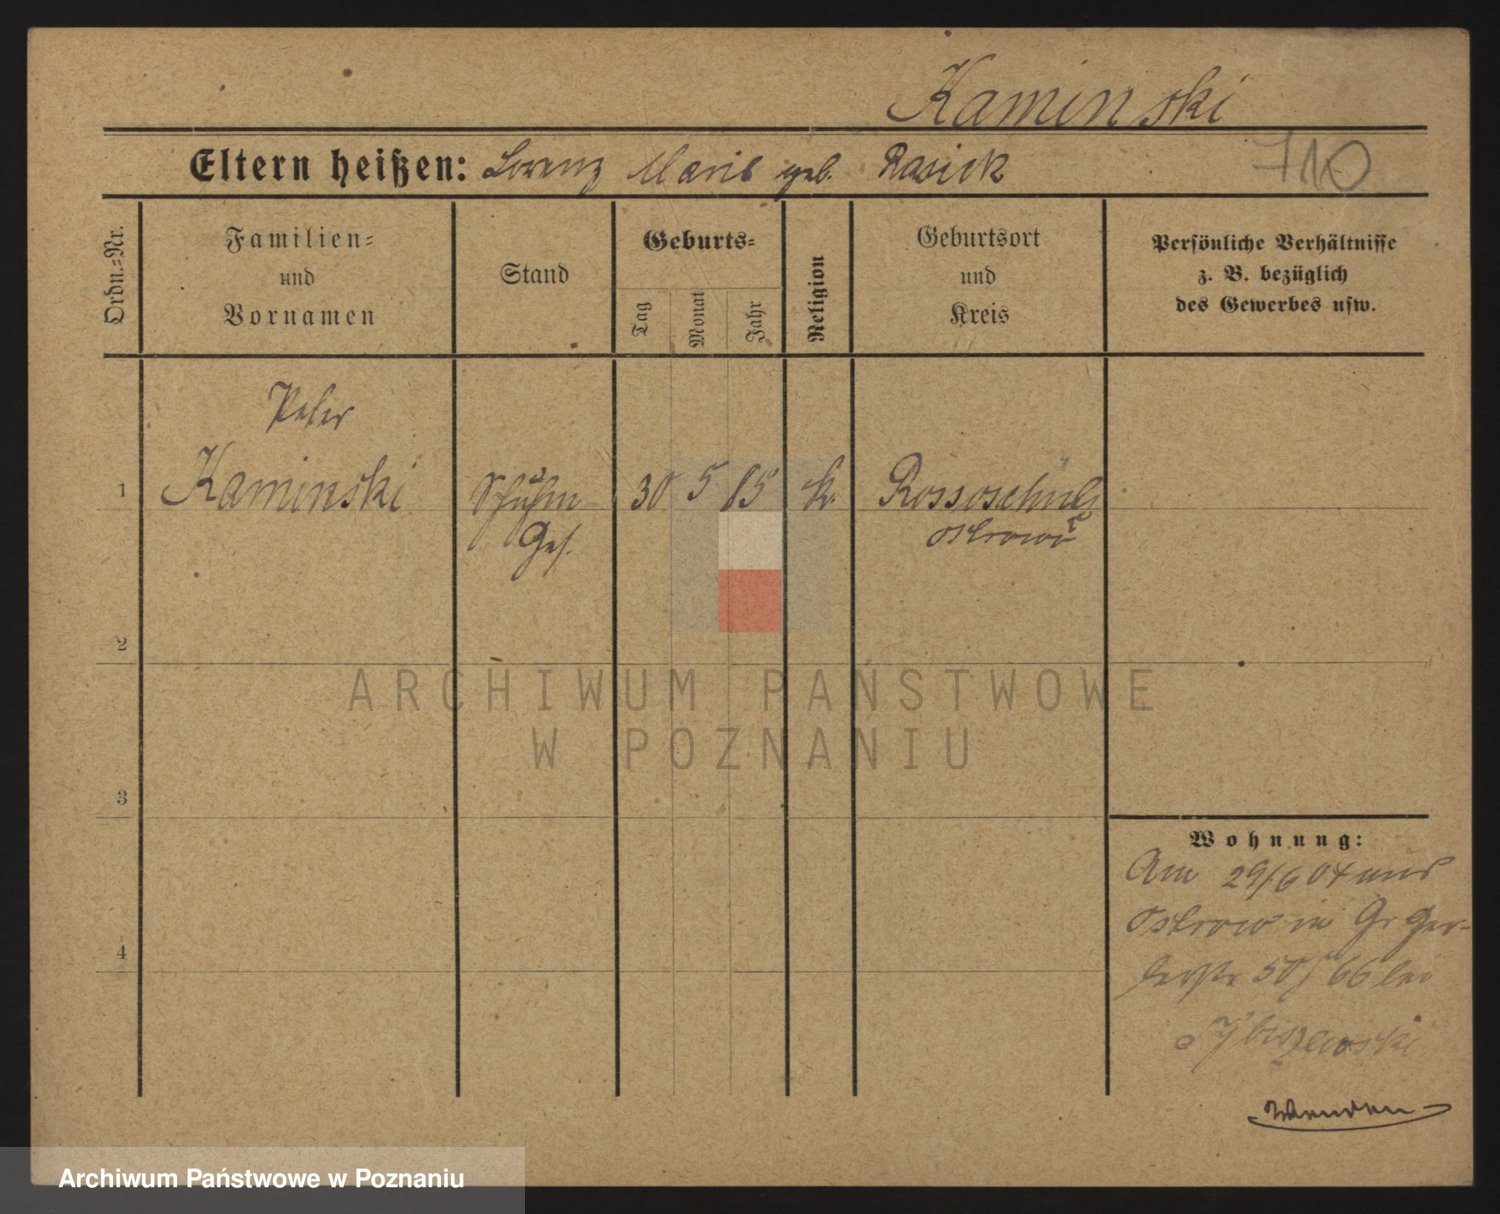 Kaminski
Eltern heißen: Lorenz Marie geb. Rasick
710
Ordn.=Nr.
Familien=
und
Vornamen
Stand
Geburts=
Tag
Monat
Jahr
Religion
Geburtsort
und
Kreis
Persönliche Verhältnisse
z. B. bezüglich
des Gewerbes usw.
Peter
1 Kaminski Schuhm 30 5 85 k.
Ges.
Ostrowo
2
ARCHIWUM PAŃSTWOWE
W POZNANIU
3
Wohnung:
Am 29/6 04 aus
Ostrowo in Gr Ger-
berstr 50/66 bei
4
Wenden
Archiwum Państwowe w Poznaniu